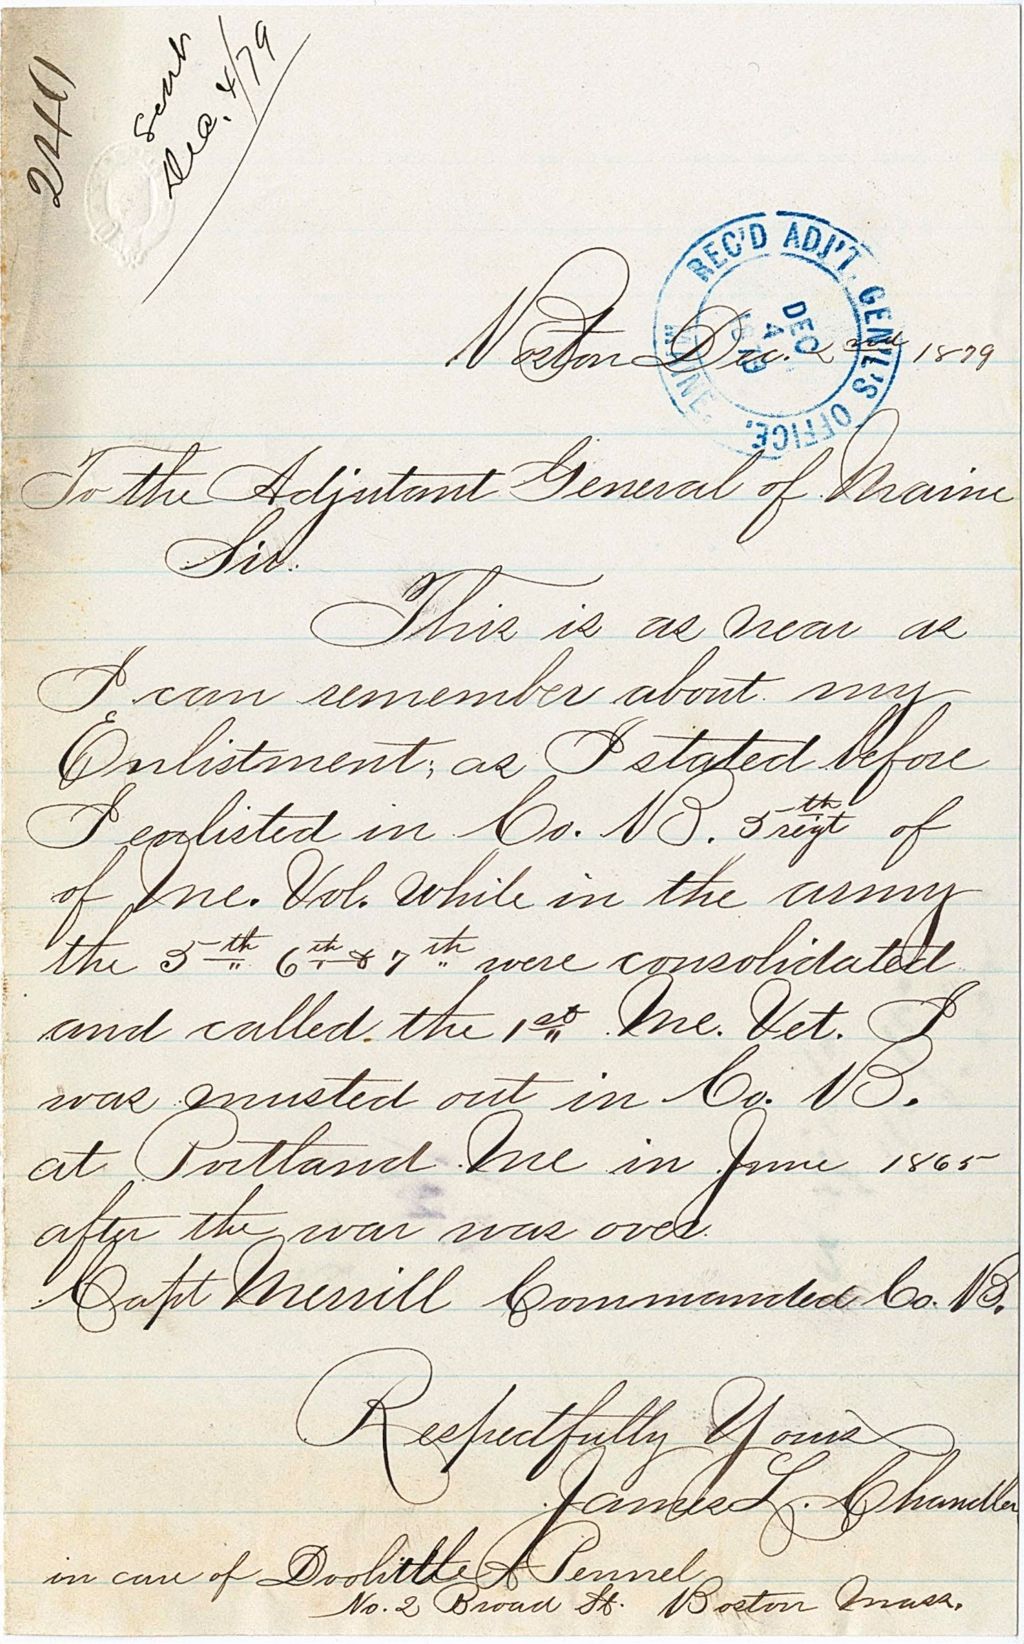 240
Sent
Dec. 4/79
REC'D ADJ'T. GENL'S OFFICE, MAINE.
DEC
4
1879
Boston Dec. 2nd 1879
To the Adjutant General of Maine
Sir.
This is as near as
I can remember about my
Enlistment; as I stated before
I enlisted in Co. B. 5th regt of
of Me. Vol. While in the army
the 5th 6th & 7th were consolidated
and called the 1st Me. Vet. I
was musted out in Co. B.
at Portland Me in June 1865
after the war was over.
Capt Merrill Commanded Co. B.
Respectfully Yours
James L. Chandler
in care of Doolittle & Pennel
No. 2 Broad St. Boston Mass.